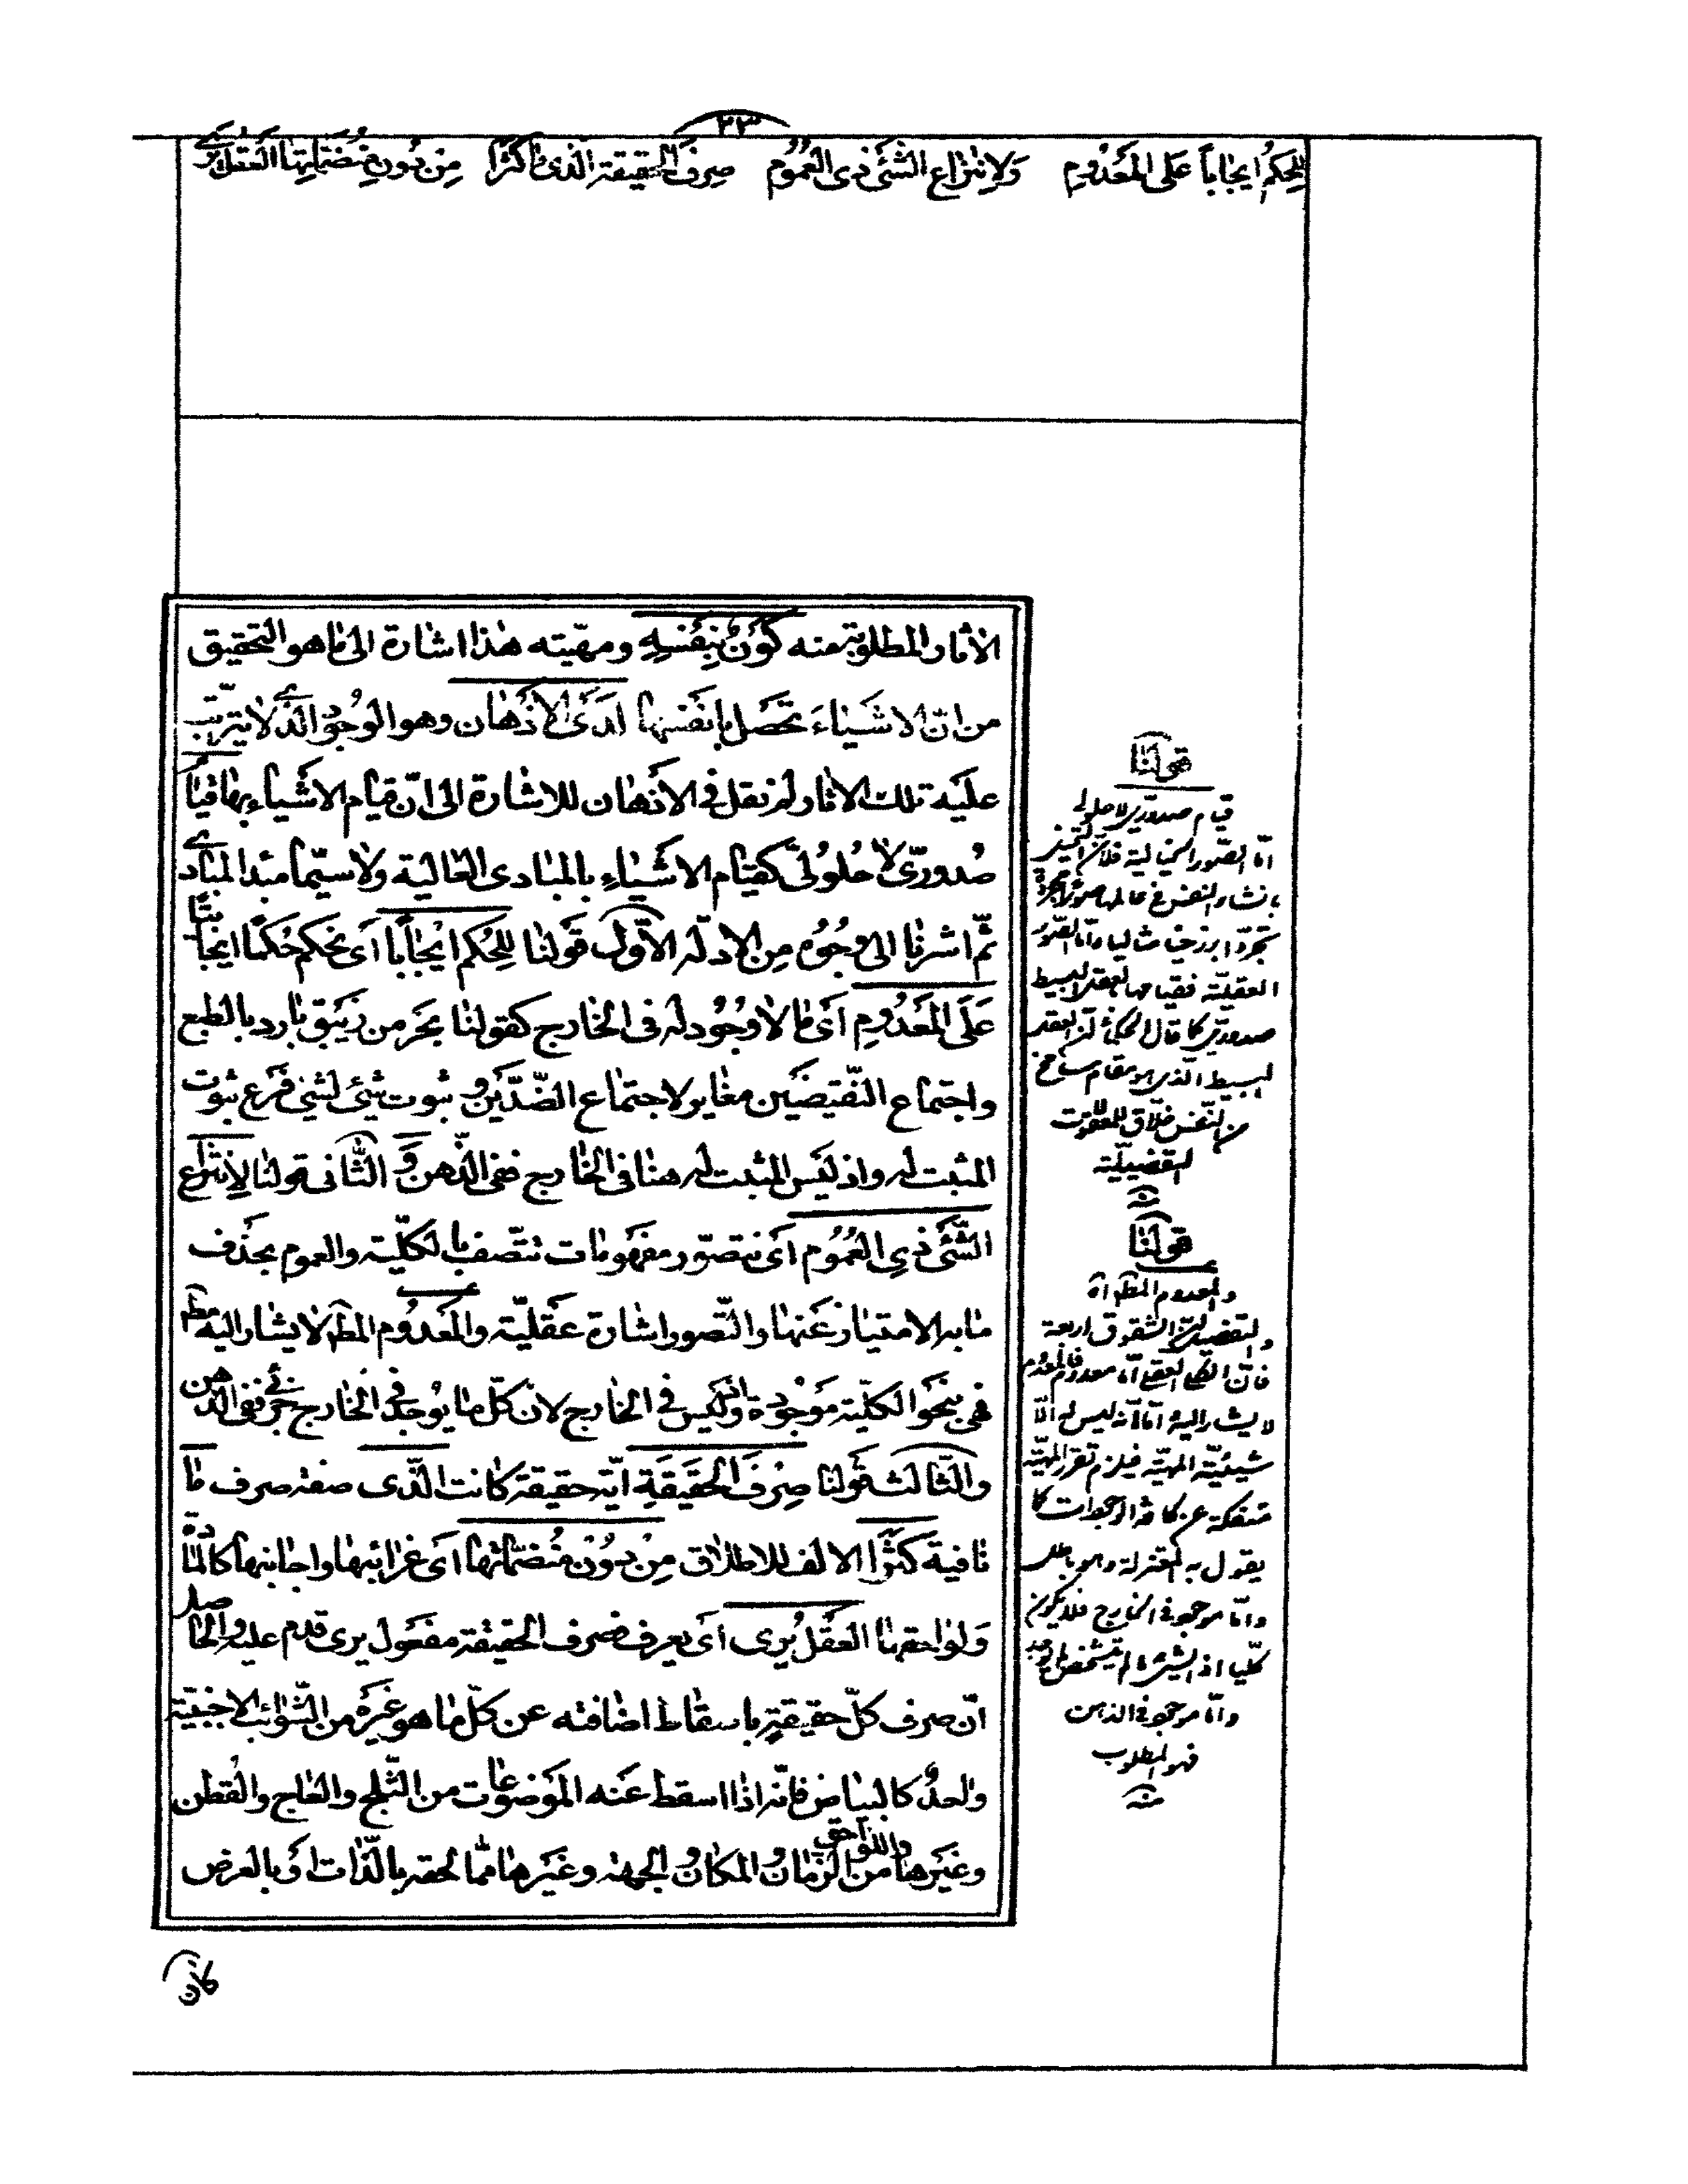 ٢٣
لِلحُكمِ ايجاباً عَلَى المَعدُومِ وَلِانتِزاعِ الشَّئ ذِى العُمُومِ صِرفُ الحَقيقَةِ الَّذى ما كَثُرا مِن دُونِ مُنضَمّاتِهَا العَقلُ يَرى
الاثار المطلوبة منه كَونٌ بِنَفسِهِ ومهيّته هذا اشارة الى ما هو التحقيق
من انّ الاشياءَ تحصل بانفسها لَدَى الاَذهان وهو الوجود الّذى لا يترتّب
عليه تلك الاثار ولم نقل فى الاذهان للاشارة الى انّ قيام الاشياء بها قياماً
صُدورىّ لا حُلُولىّ كقيام الاشياء بالمبادى العالية ولا سيّما مبدا المبادى
ثمّ اشرنا الى وجوه من الادلّه الاوّل قولنا لِلحُكمِ ايجاباً اى نحكم حُكماً ايجابيّاً
عَلَى المَعدُومِ اى ما لا وجُود له فى الخارج كقولنا بحر من زيبق بارد بالطبع
واجتماع النّقيضين مغاير لاجتماع الضّدّين وثبوت شئ لشئ فرع ثبوت
المثبت له واذ ليس المثبت له هنا فى الخارج ففى الذّهن وَ الثّانى قولنا لِانتِزاعِ
الشَّئ ذِى العُمُومِ اى نتصوّر مفهومات تتّصف بالكلّية والعموم بحذف
ما به الامتياز عنها والتّصور اشارة عقليّة والمعدوم المطلق لا يشار اليه مطلقا
فهى بنحو الكليّة موجودة واذ ليس فى الخارج لانّ كلّ ما يوجد فى الخارج جزئى ففى الذهن
والثّالث قولنا صِرفُ الحَقيقَةِ ايّة حقيقة كانت الَّذى صفة صرف ما
نافية كَثُرا الالف للاطلاق مِن دُونِ مُنضَمّاتِها اى غرائبها واجانبها كالمادّة
ولواحقها العَقلُ يَرى اى يعرف فصرف الحقيقة مفعول يرى قدم عليه والحاصل
انّ صرف كلّ حقيقةٍ باسقاط اضافته عن كلّ ما هو غيره من الشّوائب الاجنبيّة
واحدٌ كالبياض فانّه اذا اسقط عنه الموضوعات من الثّلج والعاج والقطن
وغيرها واللواحق من الزّمان والمكان والجهة وغيرها ممّا لحقه بالذّات او بالعرض
كان
قولنا
قيام صدورىّ لا حلولى
امّا الصّور الخيالية
بانشاء النفس فى عالمها
العقليّة فقيامها بالعقل البسيط
صدورىّ كما قال الحكماء انّ العقل
البسيط الّذى هو مقام شامخ
من النّفس خلّاق للمعقولات
التفصيليّة
منه
قولنا
والمعدوم المطلق اه
والتفصيل انّ الشقوق اربعة
فانّ الكلى العقلى امّا معدوم فالمعدوم
لا يشار اليه امّا انه ليس له الّا
شيئيّة المهيّة فيلزم تقرّر المهيّة
منفكة عن كافة الوجودات كما
يقول به المعتزلة وهو باطل
وامّا موجود فى الخارج فلا يكون
كلّيا اذ الشئ ما لم يتشخّص لم يوجد
وامّا موجود فى الذهن
فهو المطلوب
منه